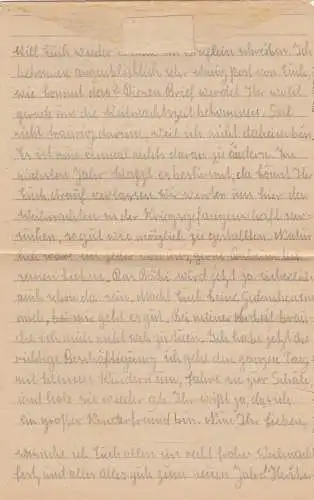 Will Euch wieder einmal ein schreiben. Ich
bekomme augenblicklich sehr wenig post von Euch,
wie kommt das? Diesen Brief werdet Ihr wohl
gerade um die Weihnachtszeit bekommen. Seid
nicht traurig darum, weil ich nicht daheim bin.
Es ist nun einmal nichts daran zu ändern. Im
nächsten Jahr klappt es bestimmt, da könnt Ihr
Euch drauf verlassen. Wir werden uns hier das
Weihnachten in der Kriegsgefangenschaft ver-
suchen, so gut wie möglich zu gestallten. Natür-
lich wäre ein jeder von uns, gerne
seinen Lieben. Der wird jetzt ja sicherlich
auch schon da sein. Macht Euch keine Gedanken um
mich, bei mir geht es gut. Bei meiner Arbeit brau-
che ich mich nicht weh zu tun. Ich habe jetzt die
richtige Beschäftigung, ich gehe den ganzen Tag
mit kleinen Kindern um, fahre sie zur Schule,
und hole sie wieder ab. Ihr wißt ja, das ich
ein großer Kinderfreund bin. Nun Ihr Lieben,
wünsche ich Euch allen ein recht frohes Weihnachts-
fest, und alles Alles gute zum neuen Jahr.